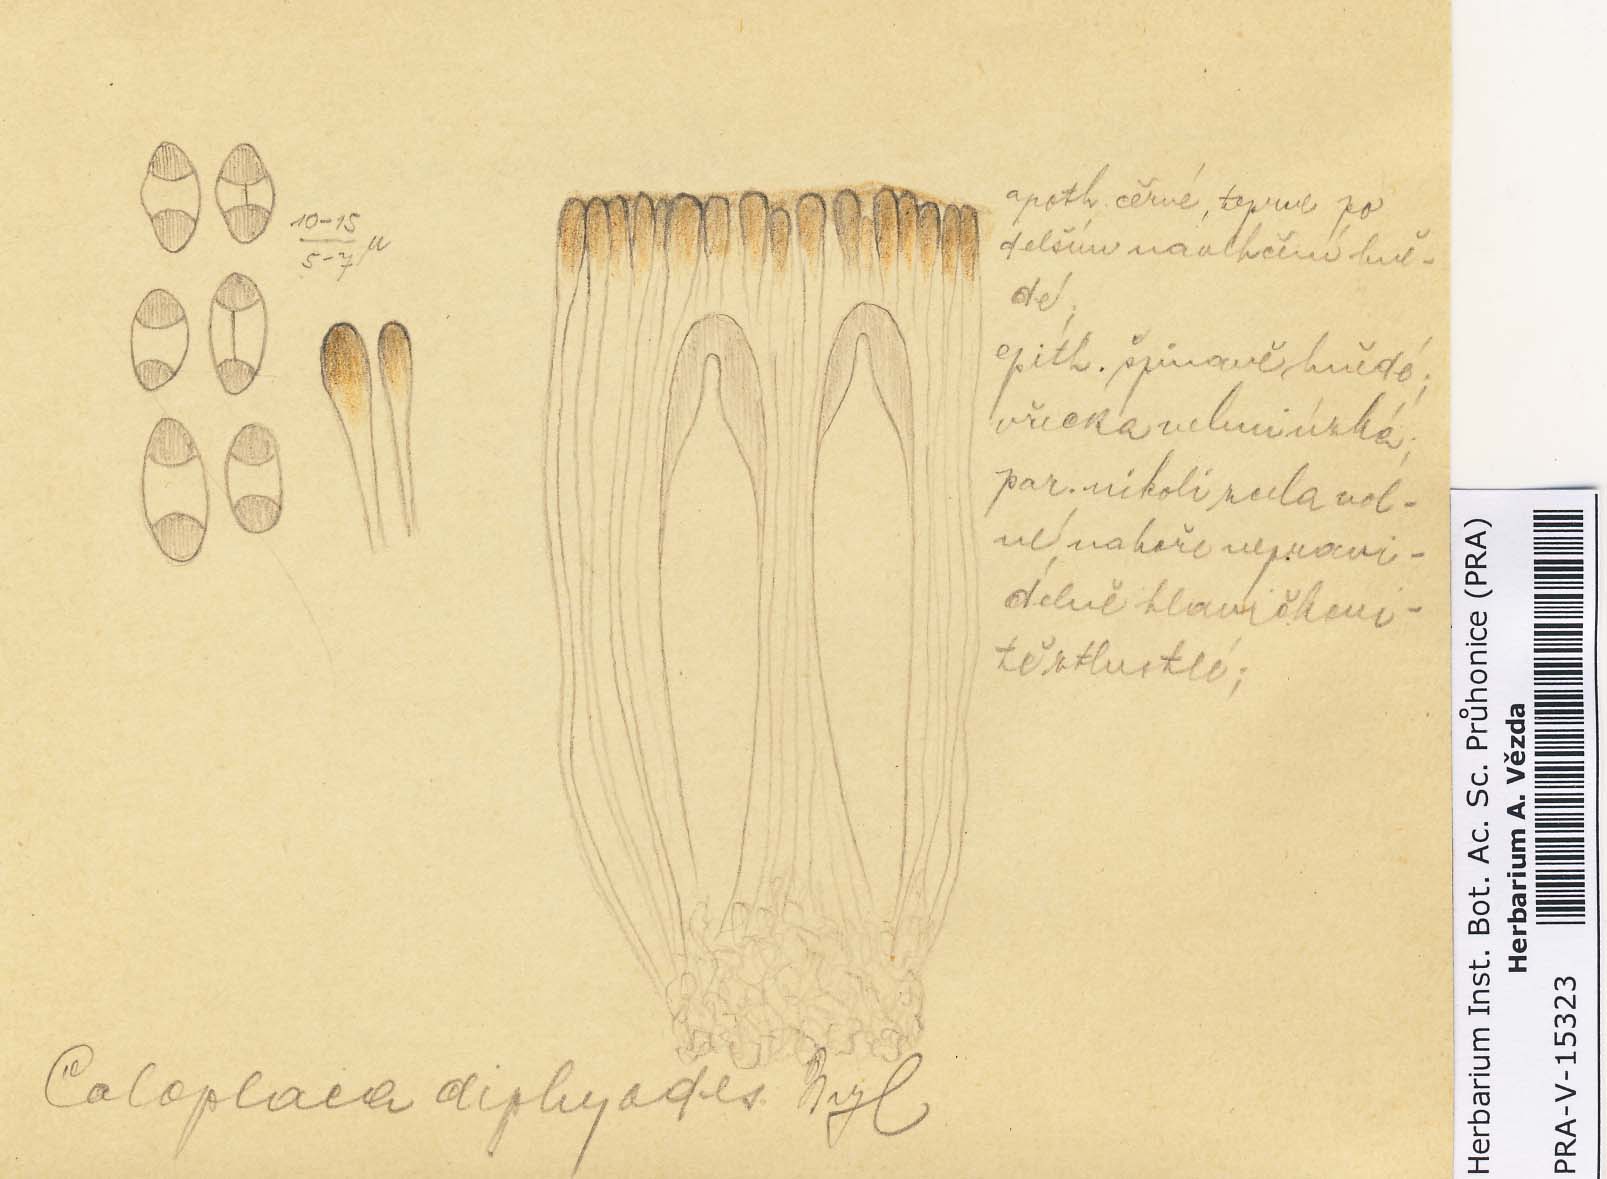 10-15
5-7 µ
apoth. cěrné, teprve po
delším navlhčení hně-
dé;
epith. špinavě hnědé;
vřecka velmi úzká;
par. nikoli zcela vol-
né, nahoře nepravi-
delně hlavičkovi-
tě ztlustlé;
Caloplaca diphyodes Nyl
Herbarium Inst. Bot. Ac. Sc. Průhonice (PRA)
Herbarium A. Vězda
PRA-V-15323